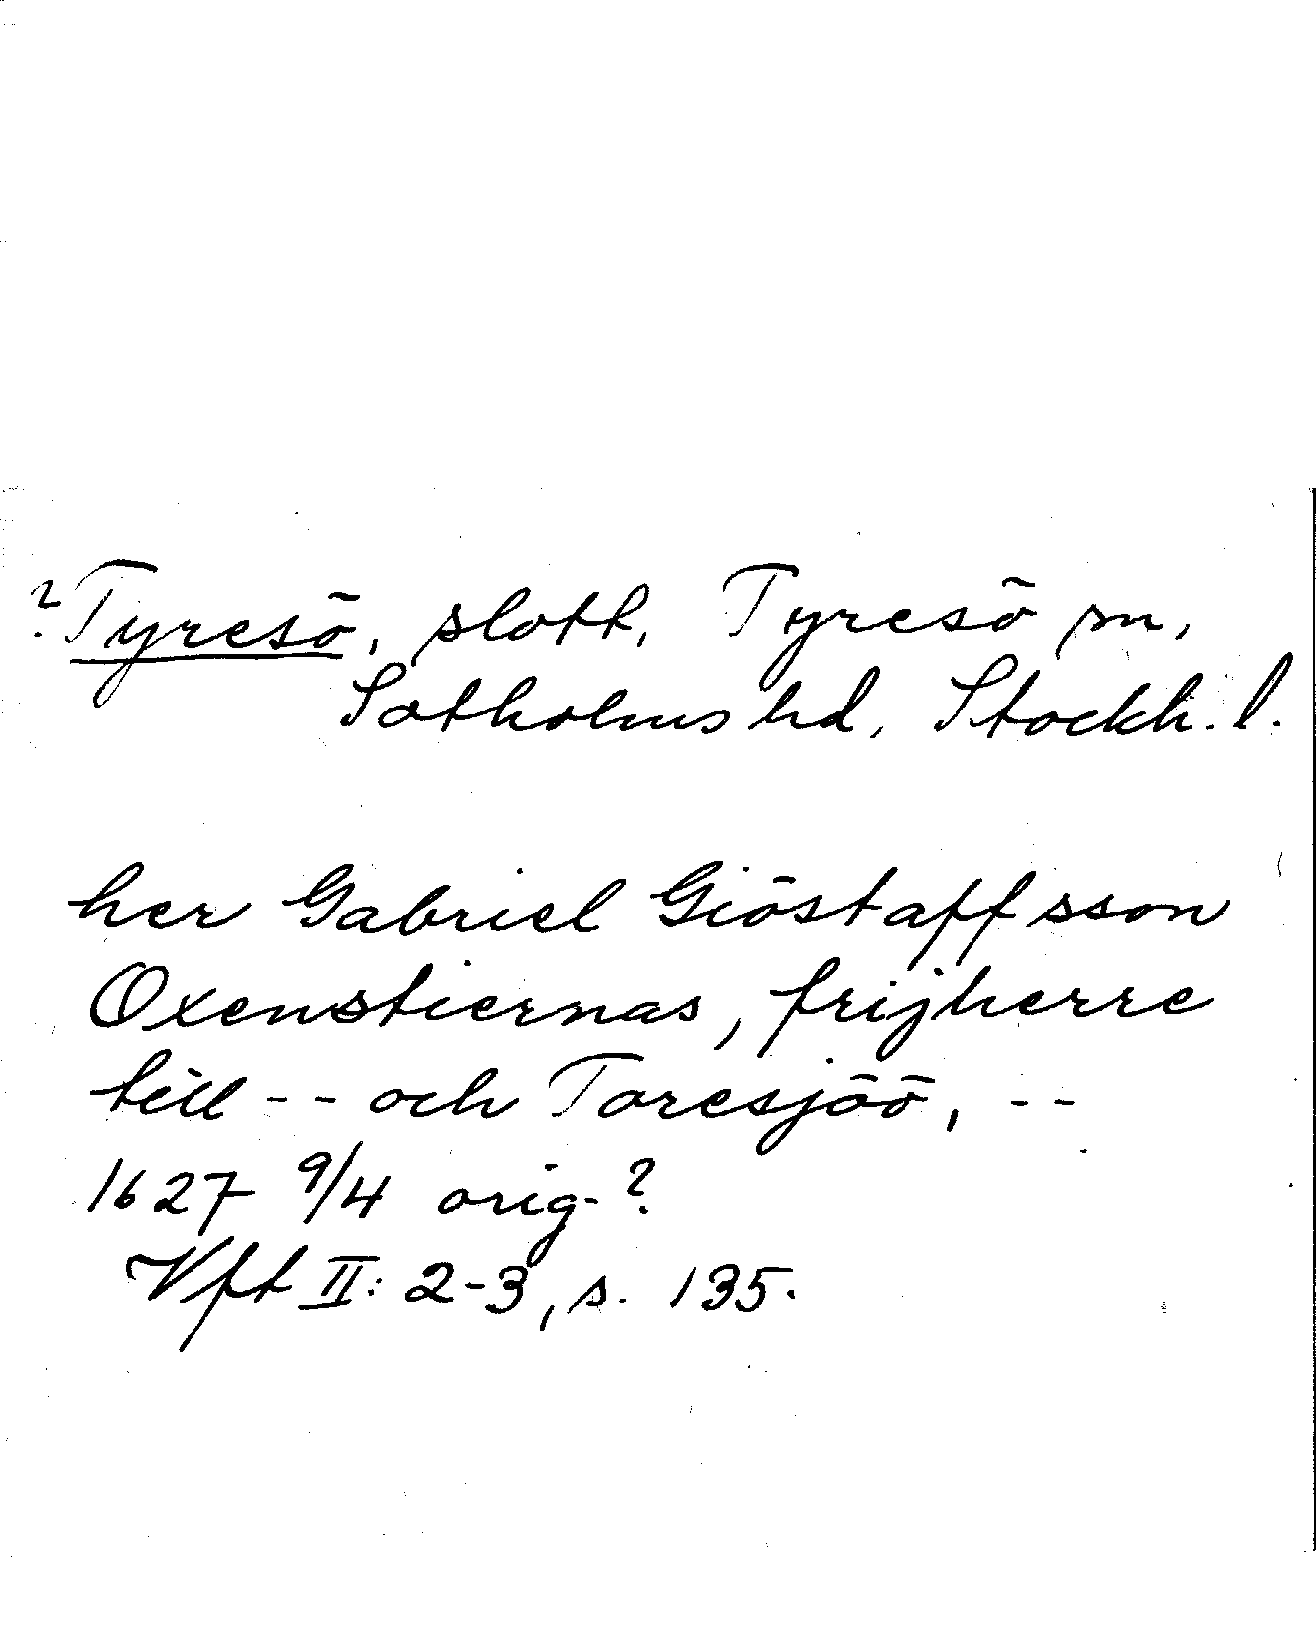 ? Tyresö, slott, Tyresö sn,
Sotholms hd, Stockh. l.
her Gabriel Giöstaffsson
Oxenstiernas, frijherre
till -- och Toresjöö, --
1627 9/4 orig. ?
Vft II: 2-3, s. 135.